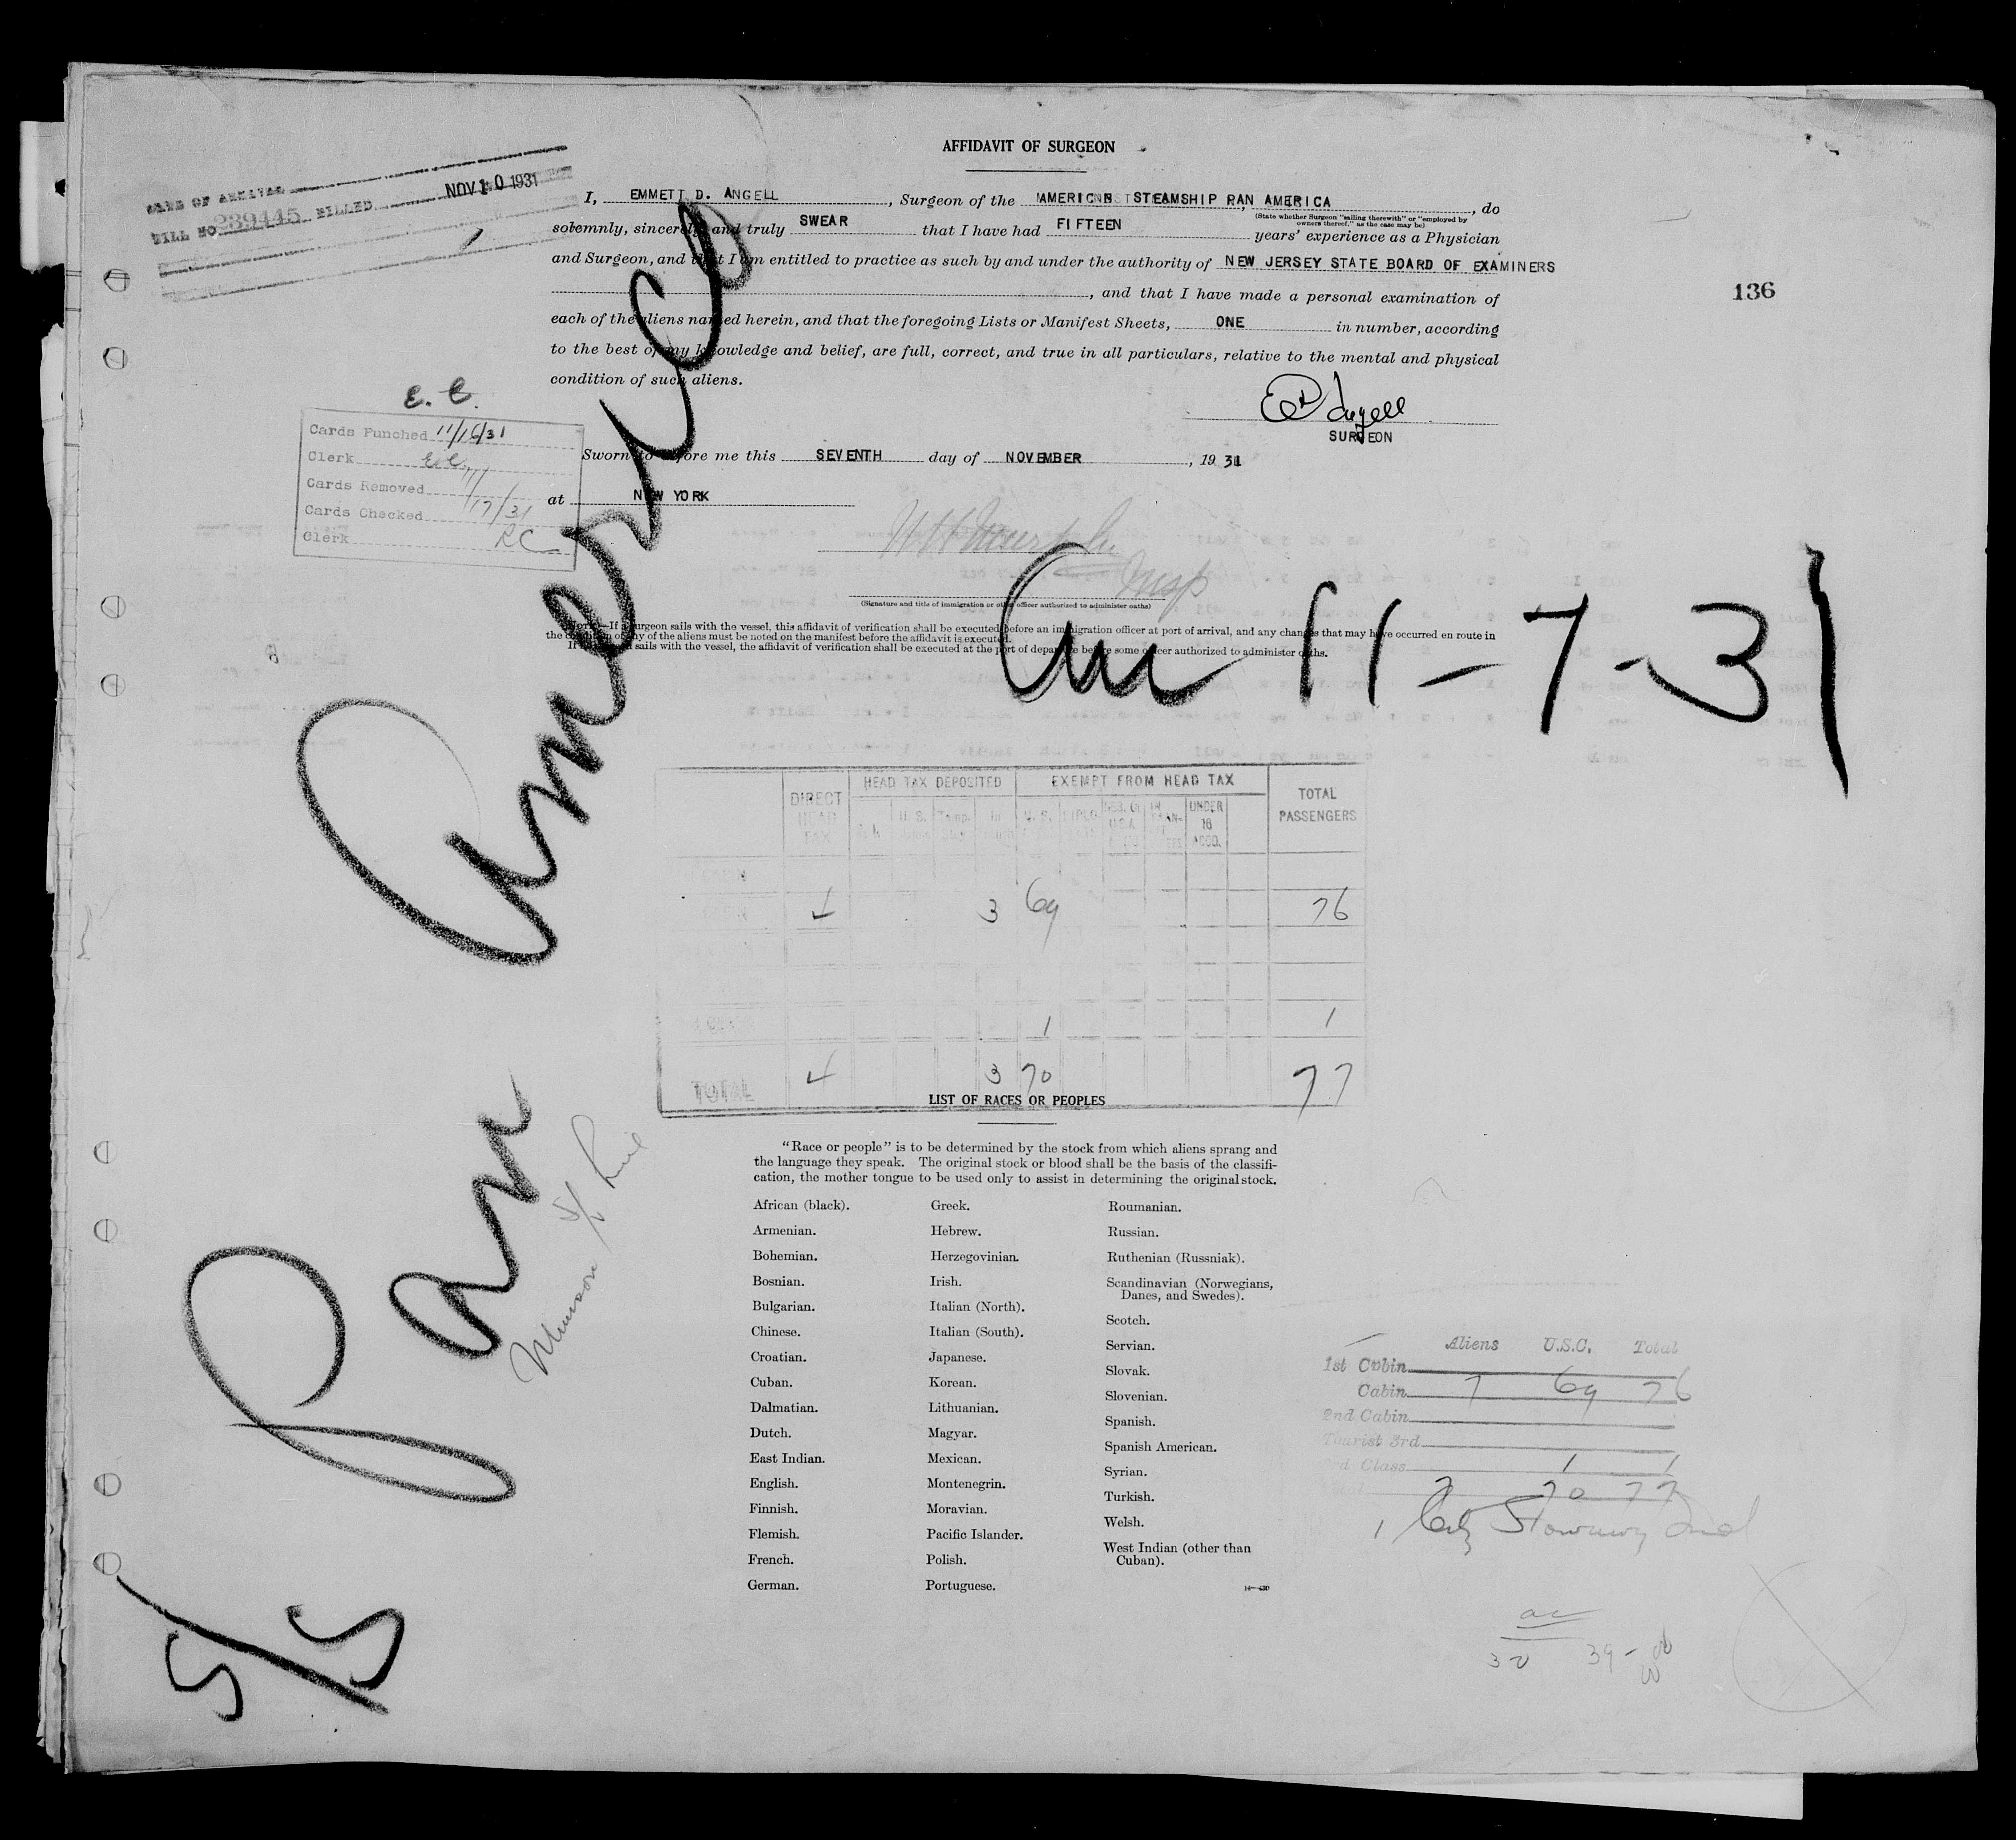 AFFIDAVIT OF SURGEON
NOV 10 1931
BILL NO. 239445 BILLED
I, EMMETT D. ANGELL, Surgeon of the AMERICAN STEAMSHIP PAN AMERICA, do
(State whether Surgeon "sailing therewith" or "employed by
owners thereof," as the case may be)
solemnly, sincerely, and truly SWEAR that I have had FIFTEEN years' experience as a Physician
and Surgeon, and that I am entitled to practice as such by and under the authority of NEW JERSEY STATE BOARD OF EXAMINERS
, and that I have made a personal examination of
136
each of the aliens named herein, and that the foregoing Lists or Manifest Sheets, ONE in number, according
to the best of my knowledge and belief, are full, correct, and true in all particulars, relative to the mental and physical
condition of such aliens.
SURGEON
E. C.
Cards Punched 11/16/31
Clerk E.C.
Cards Removed
Cards Checked 11/17/31
Clerk RC
Sworn to before me this SEVENTH day of NOVEMBER, 1931
at NEW YORK
Insp
(Signature and title of immigration or other officer authorized to administer oaths)
NOTE.—If a surgeon sails with the vessel, this affidavit of verification shall be executed before an immigration officer at port of arrival, and any changes that may have occurred en route in
the condition of any of the aliens must be noted on the manifest before the affidavit is executed.
sails with the vessel, the affidavit of verification shall be executed at the port of departure before some officer authorized to administer oaths.
11-7-31
S/S Pan America
Munson S/S Line
DIRECT HEAD TAX
HEAD TAX DEPOSITED
EXEMPT FROM HEAD TAX
TOTAL PASSENGERS
UNDER 16 ACCD.
4 3 69 76
1 1
TOTAL 4 3 70 77
LIST OF RACES OR PEOPLES
"Race or people" is to be determined by the stock from which aliens sprang and
the language they speak. The original stock or blood shall be the basis of the classifi-
cation, the mother tongue to be used only to assist in determining the original stock.
African (black).
Armenian.
Bohemian.
Bosnian.
Bulgarian.
Chinese.
Croatian.
Cuban.
Dalmatian.
Dutch.
East Indian.
English.
Finnish.
Flemish.
French.
German.
Greek.
Hebrew.
Herzegovinian.
Irish.
Italian (North).
Italian (South).
Japanese.
Korean.
Lithuanian.
Magyar.
Mexican.
Montenegrin.
Moravian.
Pacific Islander.
Polish.
Portuguese.
Roumanian.
Russian.
Ruthenian (Russniak).
Scandinavian (Norwegians,
Danes, and Swedes).
Scotch.
Servian.
Slovak.
Slovenian.
Spanish.
Spanish American.
Syrian.
Turkish.
Welsh.
West Indian (other than
Cuban).
Aliens U.S.C. Total
1st Cabin
Cabin 7 69 76
2nd Cabin
Tourist 3rd
3rd Class 1 1
7 70 77
1 Stowaway
32 39